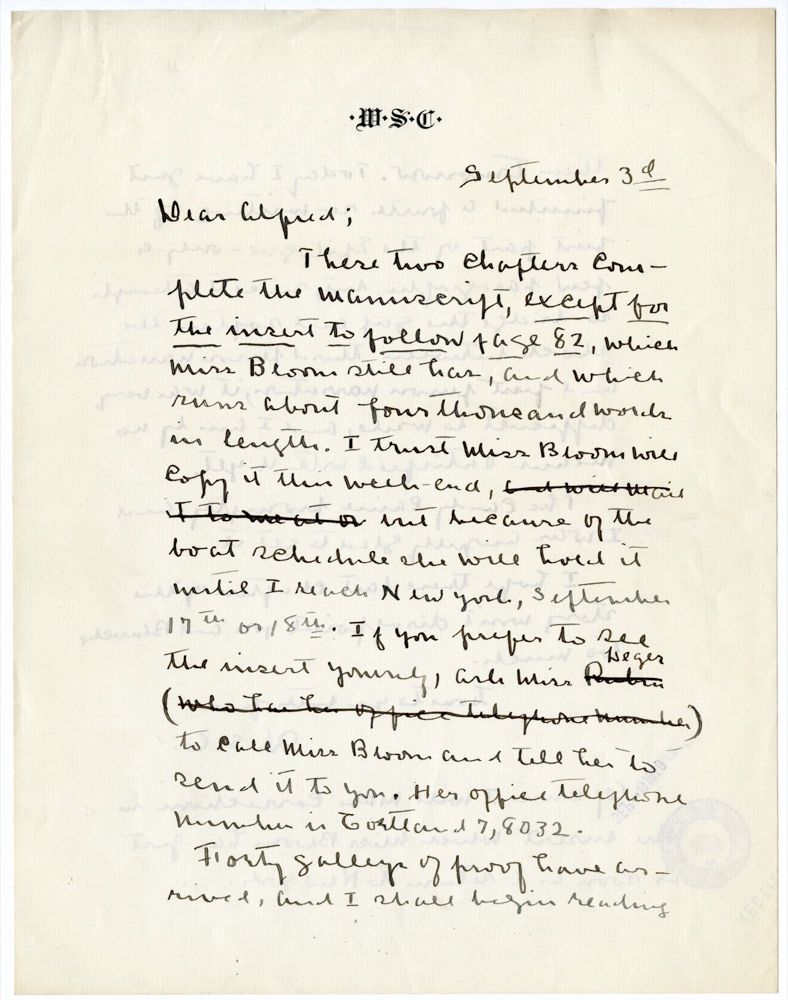 ·W·S·C·
September 3d
Dear Alfred;
These two chapters com-
plete the manuscript, except for
the insert to follow page 82, which
Miss Bloom still has, and which
runs about four thousand words
in length. I trust Miss Bloom will
copy it this week-end, and will mail
it to me at or but because of the
boat schedule she will hold it
until I reach New York, September
17th or 18th. If you prefer to see
the insert yourself, ask Miss Rubin Deger
(who has her office telephone number)
to call Miss Bloom and tell her to
send it to you. Her office telephone
number is Cortland 7,8032.
Forty galleys of proof have ar-
rived, and I shall begin reading